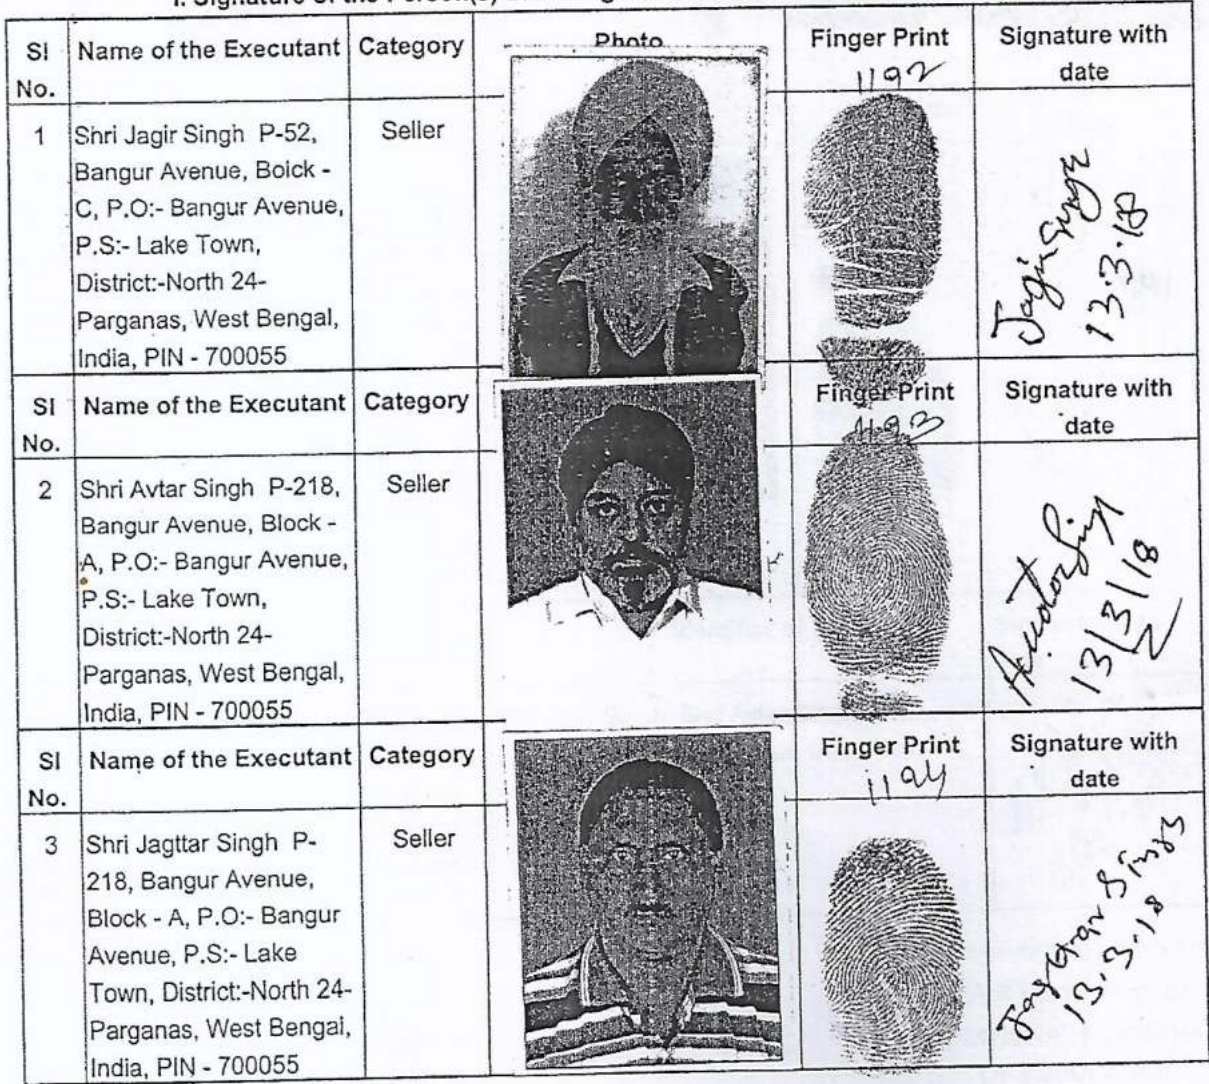 I. Signature of the Person(s)
Sl No. Name of the Executant Category Photo Finger Print Signature with date
1192
1 Shri Jagir Singh P-52, Seller
Bangur Avenue, Bolck -
C, P.O:- Bangur Avenue,
P.S:- Lake Town,
District:-North 24-
Parganas, West Bengal,
India, PIN - 700055
Jagir Singh
13.3.18
Sl No. Name of the Executant Category Finger Print Signature with date
1193
2 Shri Avtar Singh P-218, Seller
Bangur Avenue, Block -
A, P.O:- Bangur Avenue,
P.S:- Lake Town,
District:-North 24-
Parganas, West Bengal,
India, PIN - 700055
Avtar Singh
13/3/18
Sl No. Name of the Executant Category Finger Print Signature with date
1194
3 Shri Jagttar Singh P- Seller
218, Bangur Avenue,
Block - A, P.O:- Bangur
Avenue, P.S:- Lake
Town, District:-North 24-
Parganas, West Bengal,
India, PIN - 700055
Jagttar Singh
13.3.18